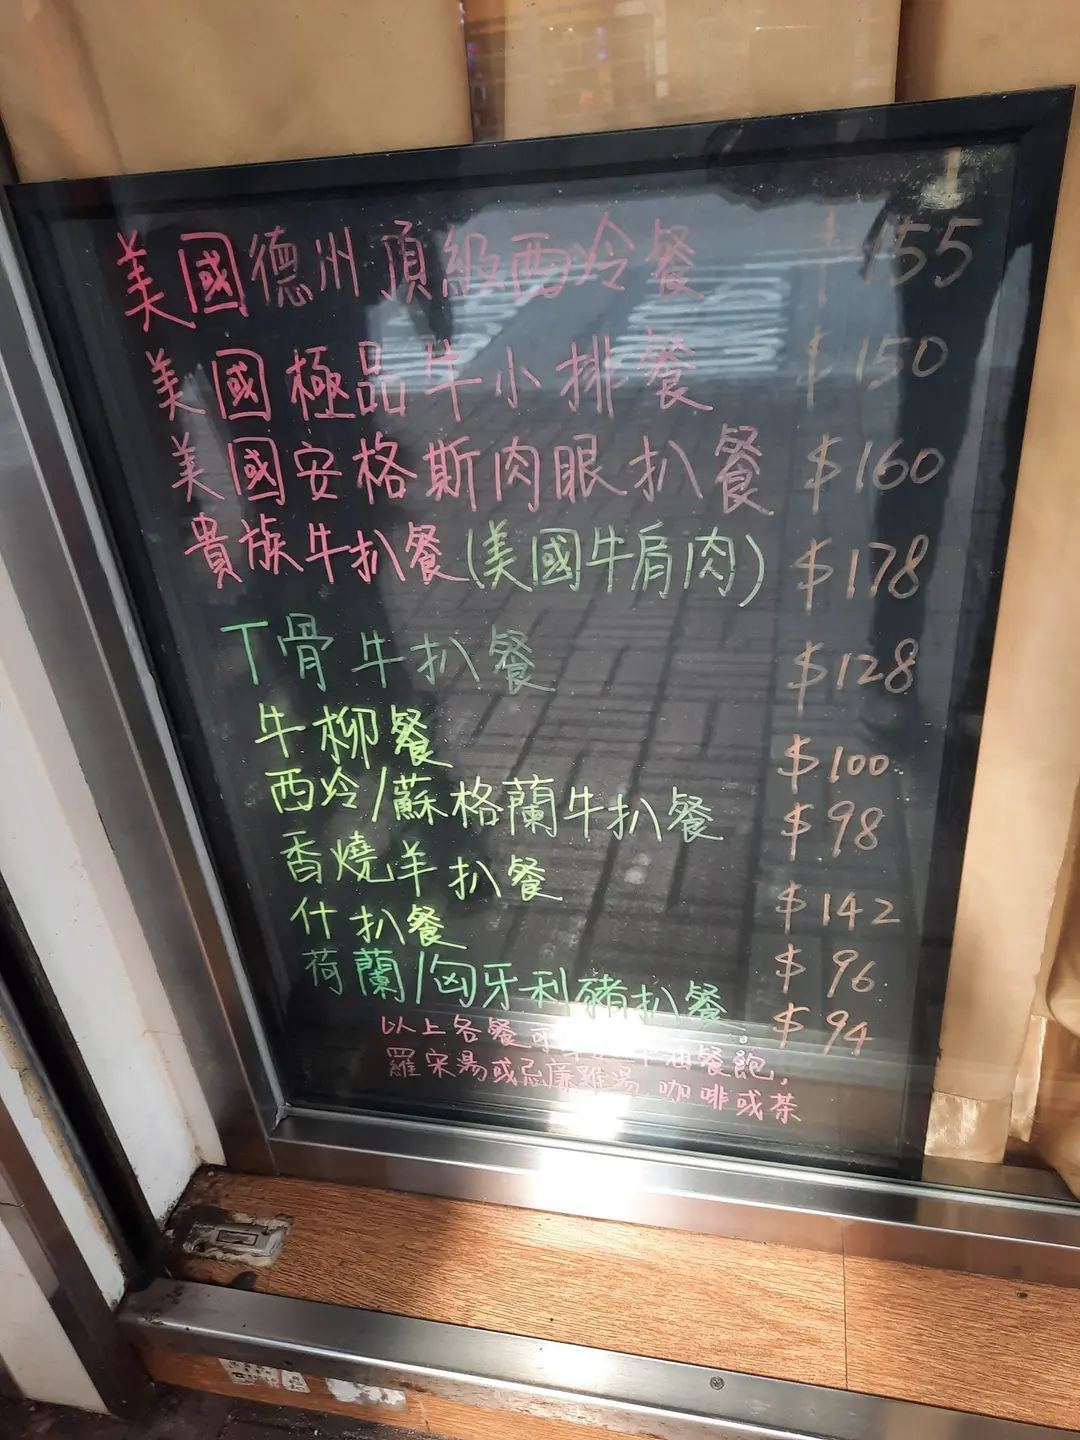 美國德州頂級西冷餐 $155
美國極品牛小排餐 $150
美國安格斯肉眼扒餐 $160
貴族牛扒餐(美國牛肩肉) $178
T骨牛扒餐 $128
牛柳餐 $100
西冷/蘇格蘭牛扒餐 $98
香燒羊扒餐 $142
什扒餐 $96
荷蘭/匈牙利豬扒餐 $94
以上各餐可 牛油餐飽,
羅宋湯或忌廉雞湯 咖啡或茶